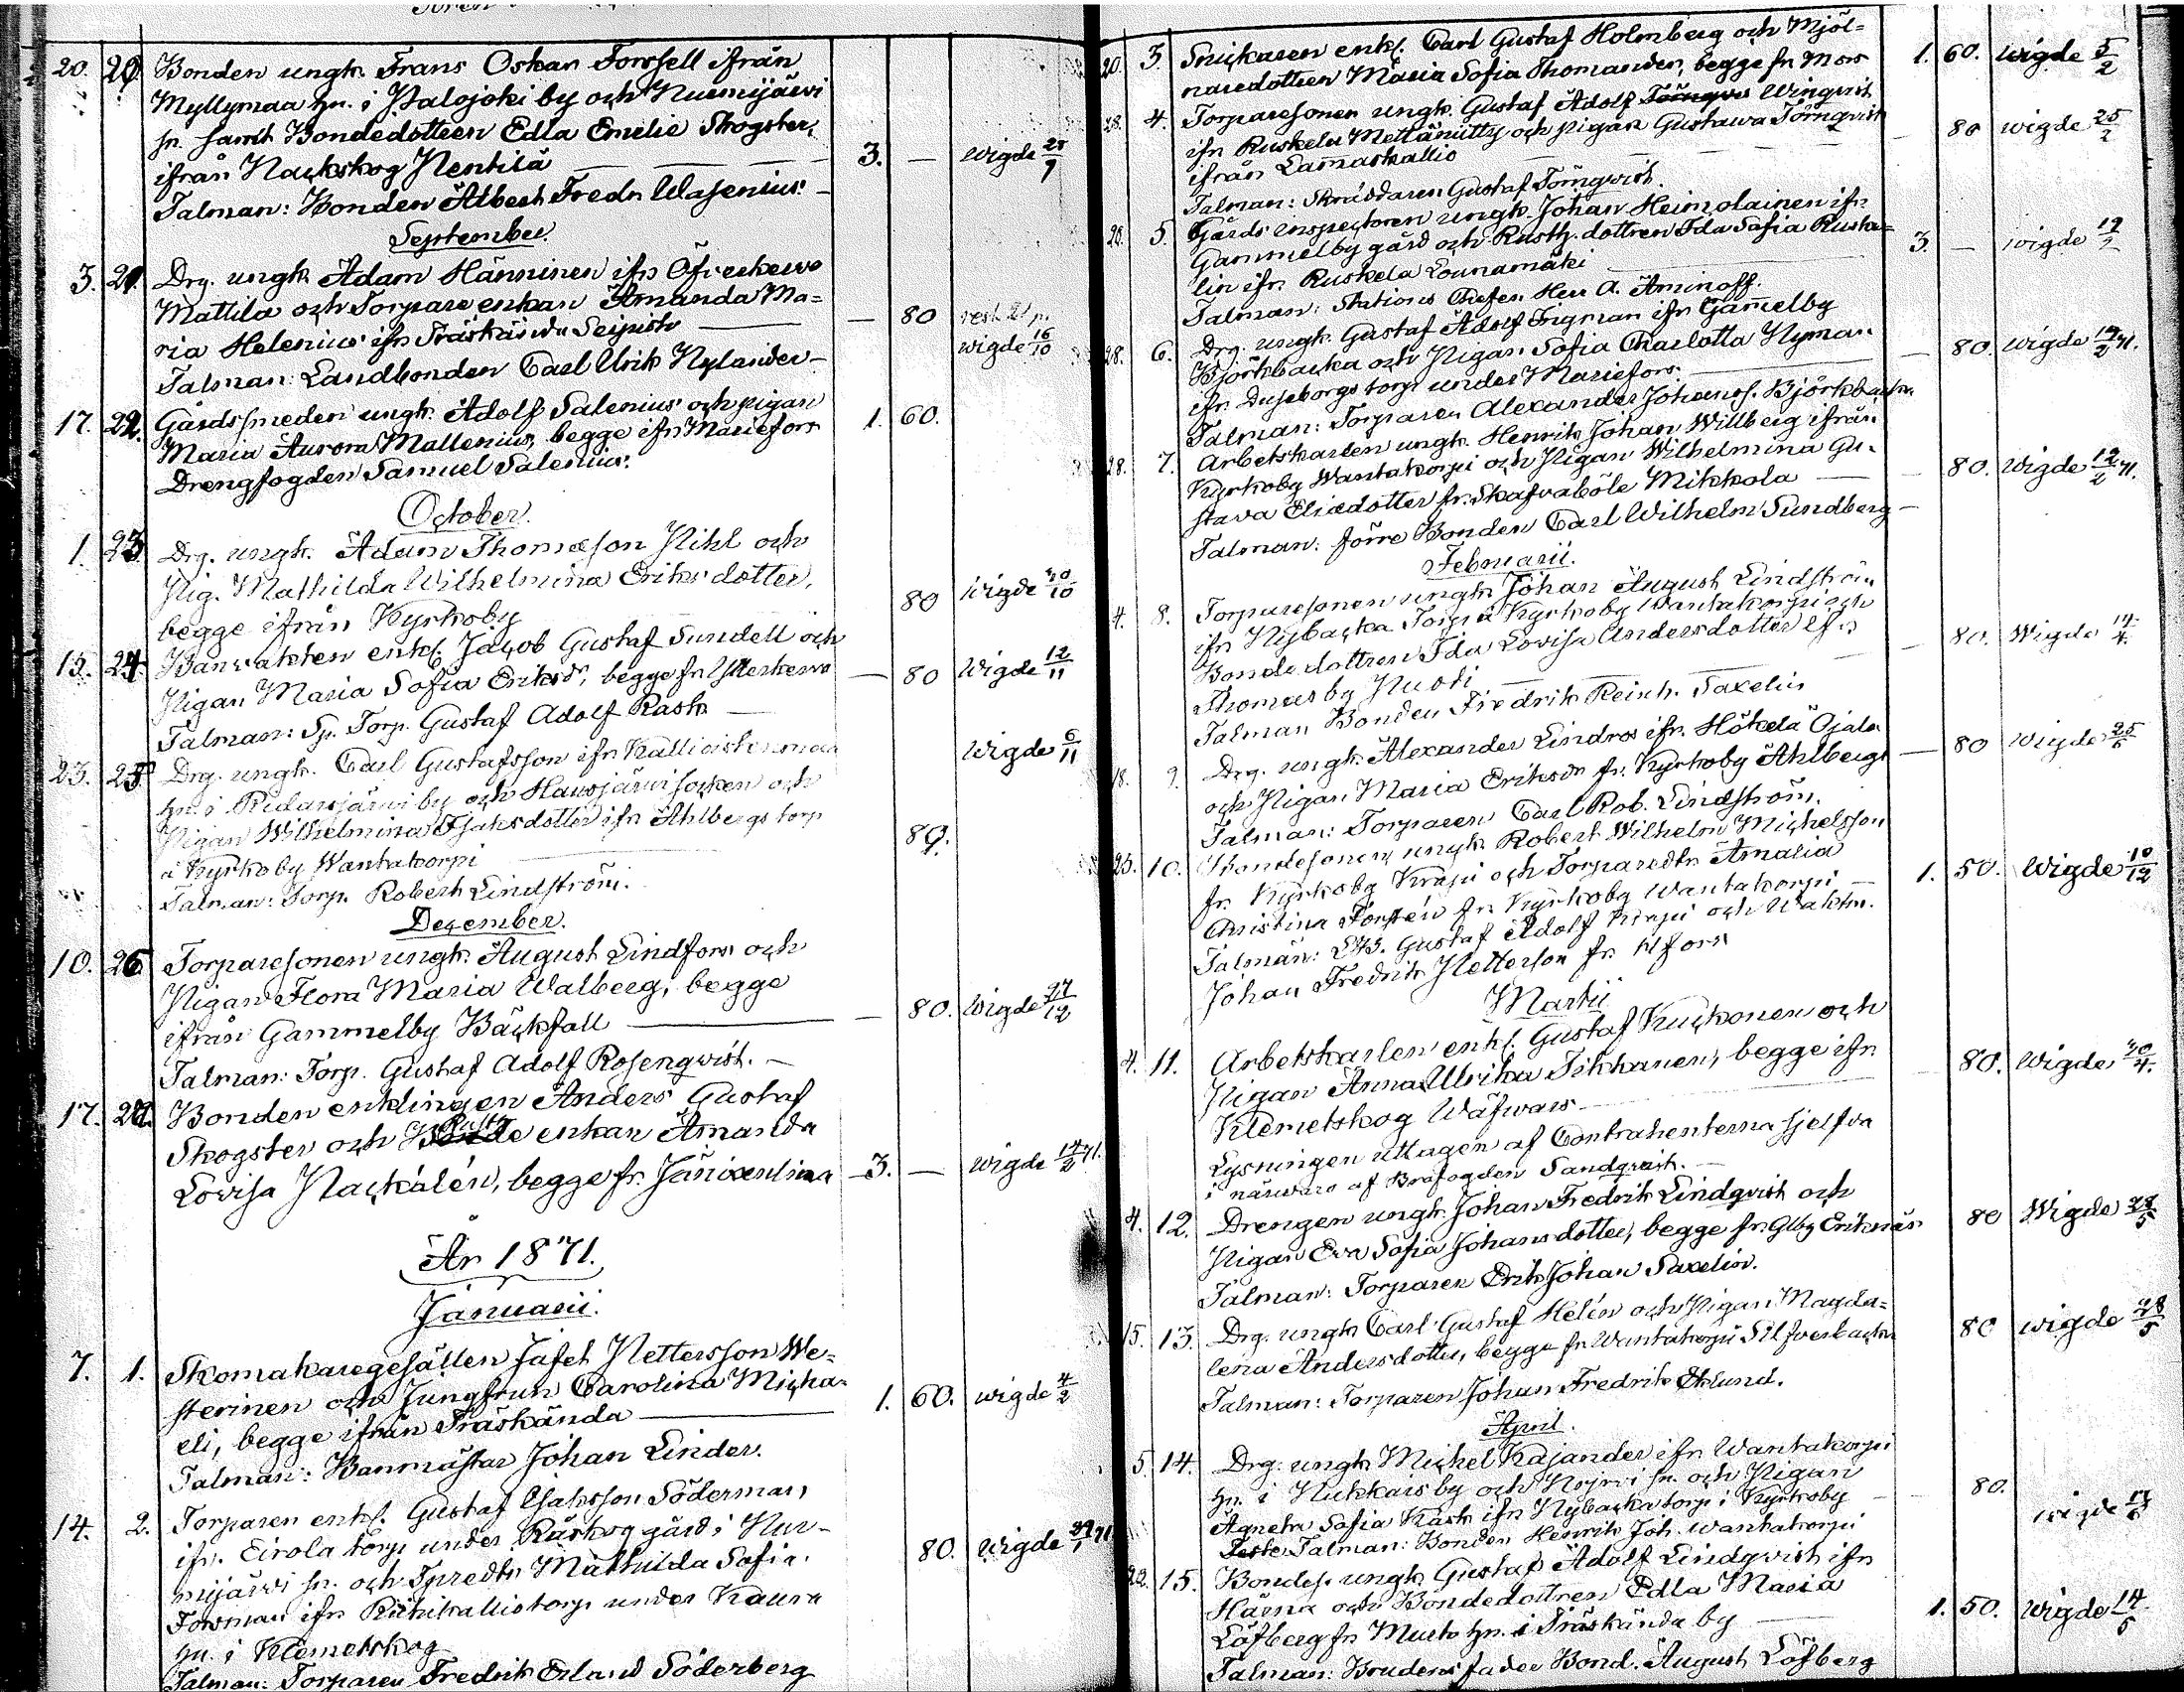 20. 20. Bonden ungk. Frans Oskar Forssell ifrån
Myllymaa hn. i Palojoki by och Nurmijärvi
sn. samt Bondedottren Edla Emelie Skogster,
ifrån Nackskog Pentilä — 3. — wigde
Talman: Bonden Albert Fredr. Wasenius.
September.
3. 21. Drg. ungk. Adam Hänninen ifrn Öfverkervo
Mattila och Torpare enkan Amanda Ma=
ria Helenius ifrn Träskända Seipist — 80
wigde 16/10
Talman: Landbonden Carl Ulrik Nylander —
17. 22. Gårdssmeden ungk. Adolf Salenius och pigan
Maria Aurora Mallenius, begge ifrn Mariefors 1. 60.
Drengfogden Samuel Salenius.
October.
1. 23. Drg. ungk. Adam Thomasson Pihl och
Pig. Mathilda Wilhelmina Eriksdotter,
begge ifrån Kyrkoby 80 wigde 30/10
15. 24. Banvakten enkl. Jacob Gustaf Sundell och
Pigan Maria Sofia Eriksd., begge fr. Ytterkervo — 80 Wigde 12/11
Talman: Sp. Torp. Gustaf Adolf Rask —
23. 25. Drg. ungk. Carl Gustafsson ifrn wigde 6/11
hn. i Ridasjärvi by och Hausjärvi socken och
Pigan Wilhelmina Isaksdotter ifrn Ahlbergs torp
å Kyrkoby Wantakorpi — 80.
Talman: Torp. Robert Lindström.
December.
10. 26. Torparesonen ungk. August Lindfors och
Pigan Flora Maria Walberg, begge
ifrån Gammelby Bäckfall — 80. wigde 27/12
Talman: Torp. Gustaf Adolf Rosenqvist. —
17. 27. Bonden enklingen Anders Gustaf
Skogster och enkan Amanda
Lovisa Nackálén, begge fr. 3. — wigde 14/2 71.
År 1871.
Januarii.
7. 1. Skomakaregesällen Jafet Pettersson We=
sterinen och Jungfrun Carolina Micha=
eli, begge ifrån Träskända — 1. 60. wigde 4/2
Talman: Banmästar Johan Linder.
14. 2. Torparen enkl. Gustaf Isaksson Söderman,
ifrn. Eirola torp under Räskog gård i Nur-
mijärvi sn. och Tpredtr Mathilda Sofia 80. wigde
Forsman ifrn Riihikallio torp under Kaura
hn. i Klemetskog
Talman: Torparen Fredrik Erland Söderberg
20. 3. Snickaren enkl. Carl Gustaf Holmberg och Mjöl=
naredottren Maria Sofia Thomander, begge fr. Mors 1. 60. wigde 5/2
28. 4. Torparesonen ungk. Gustaf Adolf Winqvist
ifrn Ruskela Mettäniitty och pigan Gustawa Törnqvist — 80 wigde 25/2
ifrån Lammaskallio
Talman: Skräddaren Gustaf Törnqvist.
28. 5. Gårds inspectoren ungk. Johan Heimolainen ifrn
Gammelby gård och Rusth. dottren Ida Sofia Ruska= 3. — wigde
lin ifrn. Ruskela Lounamäki
Talman: Stations Chefen Herr A. Aminoff.
28. 6. Drg. ungk. Gustaf Adolf Frigman ifrn Gamelby
Björkbacka och Pigan Sofia Charlotta Nyman — 80. wigde 12/2 71.
ifrn. torp under Mariefors.
Talman: Torparen Alexander Johanss. Björkbacka
28. 7. Arbetskarlen ungk. Henrik Johan Willberg ifrån
Kyrkoby Wantakorpi och Pigan Wilhelmina Gu= — 80. wigde 12/2 71.
stava Eliedotter fr. Skafvaböle Mikkola —
Talman: förre Bonden Carl Wilhelm Sundberg —
Februarii.
4. 8. Torparesonen ungk. Johan August Lindström
ifrn Nybacka Torp å Kyrkoby Wantakorpi och
Bonde dottren Ida Lovisa Andersdotter ifrn — 80. Wigde
Thomasby Nuoti
Talman Bonden Fredrik Reinh. Saxelin
18. 9. Drg. ungk. Alexander Lindros ifrn. Hökelä Ojala
och Pigan Maria Eriksdr fr. Kyrkoby Ahlbergs — 80 wigde
Talman: Torparen Carl Rob. Lindström.
25. 10. Bondesonen, ungk. Robert Wilhelm Michelsson
fr. Kyrkoby Krapi och Torparedtr Amalia
Christina Forstén fr. Kyrkoby Wantakorpi — 1. 50. Wigde 10/12
Talman: Gustaf Adolf Krapi och Waktm.
Johan Fredrik Petterson fr. Hfors
Martii
4. 11. Arbetskarlen enkl. Gustaf Kuckonen och
Pigan Anna Ulrika Tikkanen, begge ifrn 80. Wigde 30/4.
Klemetskog Wäfwars —
Lysningen uttagen af Contrahenterna sjelfva
i närwaro af Brofogden Sandqvist. —
4. 12. Drengen ungk. Johan Fredrik Lindqvist och
Pigan Eva Sofia Johansdotter, begge fr. Glby Eriksnäs 80 Wigde 28/5
Talman: Torparen Erik Johan Saxelin.
15. 13. Drg. ungk. Carl Gustaf Helén och Pigan Magda=
lena Andersdotter, begge fr. Wantakorpi Silfverbacka 80 wigde 28/5
Talman: Torparen Johan Fredrik Eklund.
April.
5. 14. Drg. ungk. Michel Kajander ifrn. Wantakorpi
hn. i Nukkais by och sn. och Pigan — 80.
Agneta Sofia Rask ifrn Nybacka torp i Kyrkoby wigde
Talman: Bonden Henrik Joh. Wantakorpi
22. 15. Bondes. ungk. Gustaf Adolf Lindqvist ifrn
Härna och Bondedottren Edla Maria
Löfberg fr. hn. i Träskända by — 1. 50. wigde 14/5
Talman: Brudens fader Bond. August Löfberg